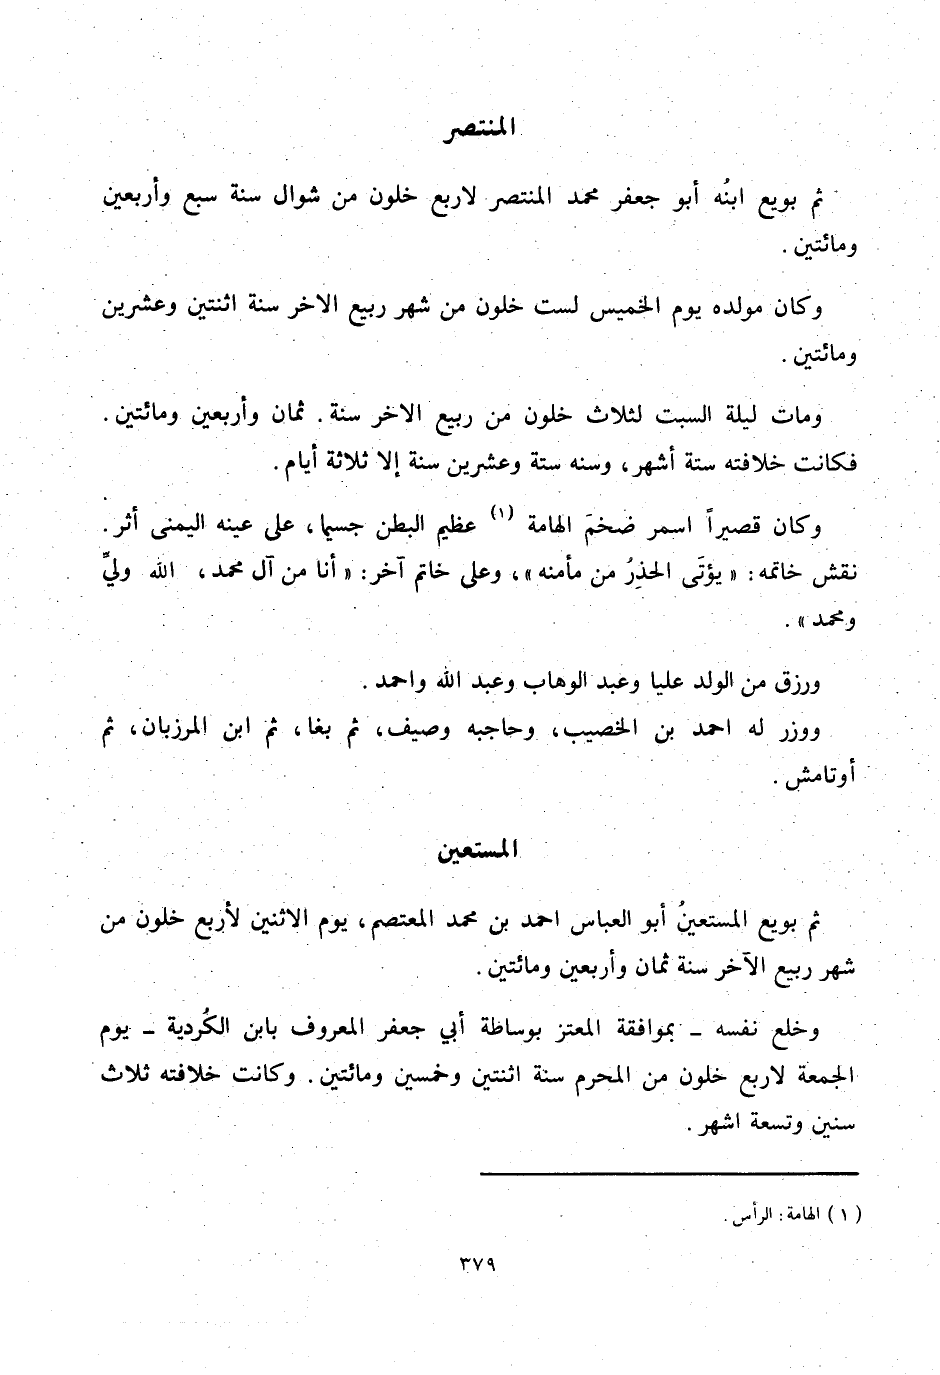 المنتصر
ثم بويع ابنُه أبو جعفر محمد المنتصر لاربع خلون من شوال سنة سبع وأربعين
ومائتين .
وكان مولده يوم الخميس لست خلون من شهر ربيع الاخر سنة اثنتين وعشرين
ومائتين .
ومات ليلة السبت لثلاث خلون من ربيع الاخر سنة . ثمان وأربعين ومائتين .
فكانت خلافته ستة أشهر ، وسنه ستة وعشرين سنة إلا ثلاثة أيام .
وكان قصيراً اسمر ضخمَ الهامة (١) عظيم البطن جسيما ، على عينه اليمنى أثر .
نقش خاتمه : « يؤتَى الحذِرُ من مأمنه » ، وعلى خاتم آخر : « أنا من آل محمد ، الله وليُّ
ومحمد » .
ورزق من الولد عليا وعبد الوهاب وعبد الله واحمد .
ووزر له احمد بن الخصيب ، وحاجبه وصيف ، ثم بغا ، ثم ابن المرزبان ، ثم
أوتامش .
المستعين
ثم بويع المستعينُ أبو العباس احمد بن محمد المعتصم ، يوم الاثنين لأربع خلون من
شهر ربيع الآخر سنة ثمان وأربعين ومائتين .
وخلع نفسه ــ بموافقة المعتز بوساطة أبي جعفر المعروف بابن الكُردية ــ يوم
الجمعة لاربع خلون من المحرم سنة اثنتين وخمسين ومائتين . وكانت خلافته ثلاث
سنين وتسعة اشهر .
( ١ ) الهامة : الرأس .
٣٧٩